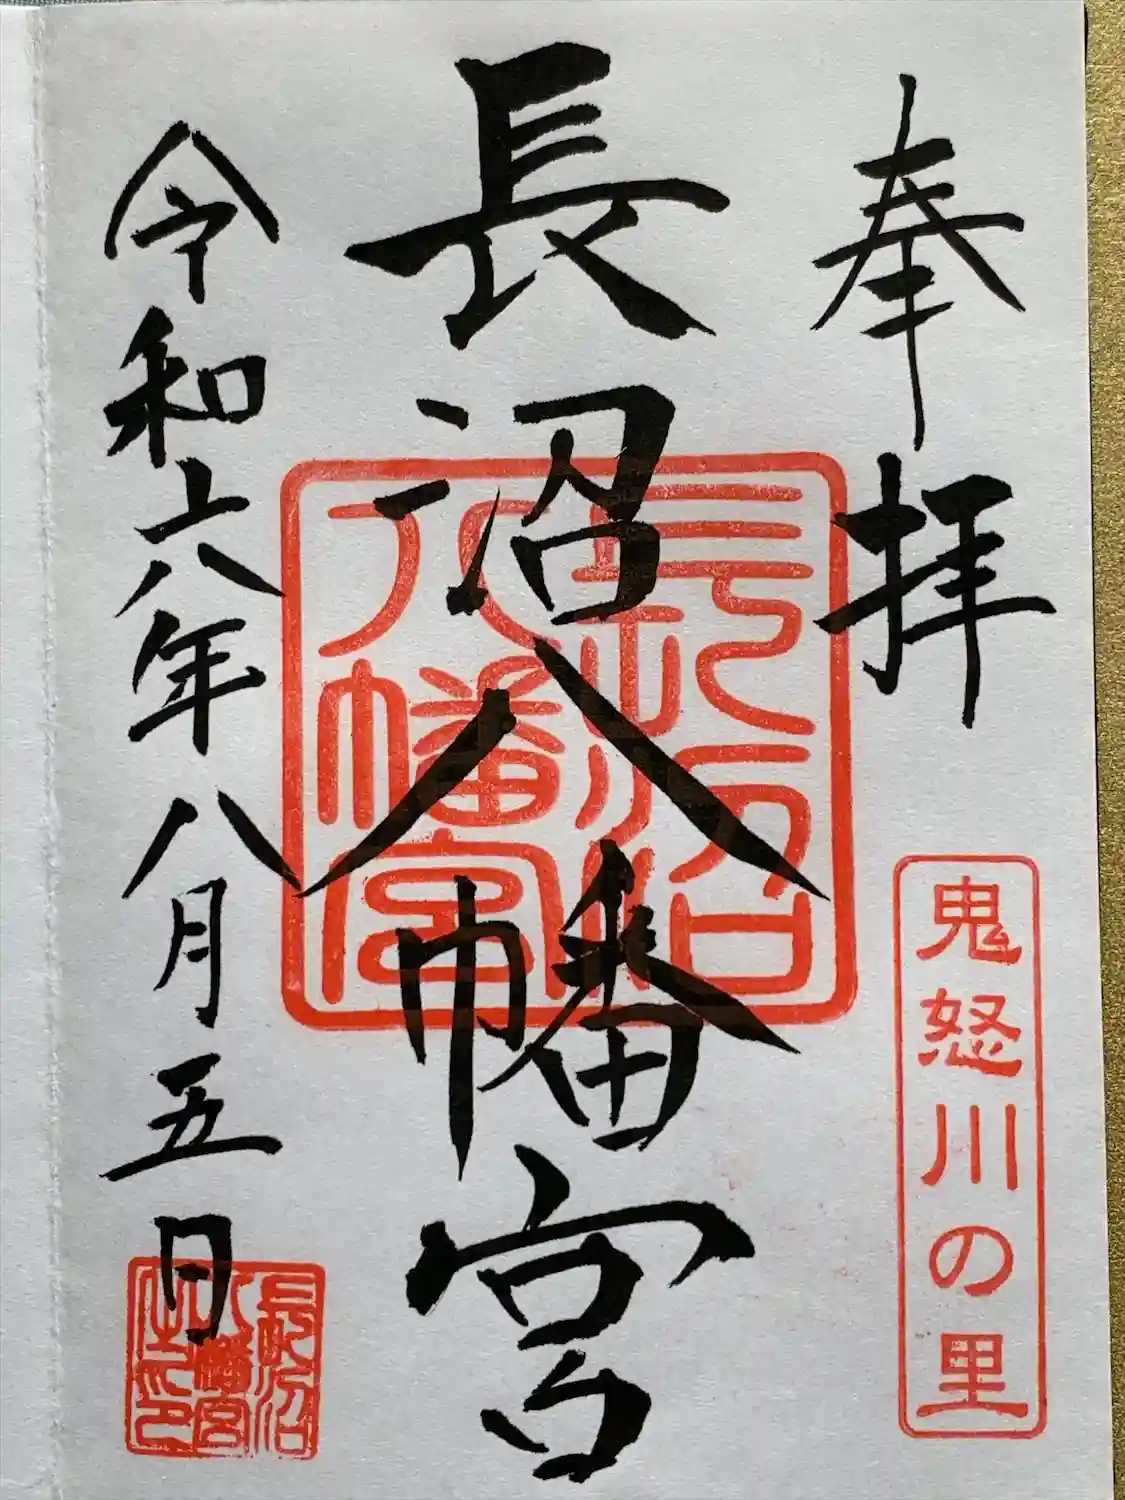 奉拝
鬼怒川の里
長沼八幡宮
長沼八幡宮
令和六年八月五日